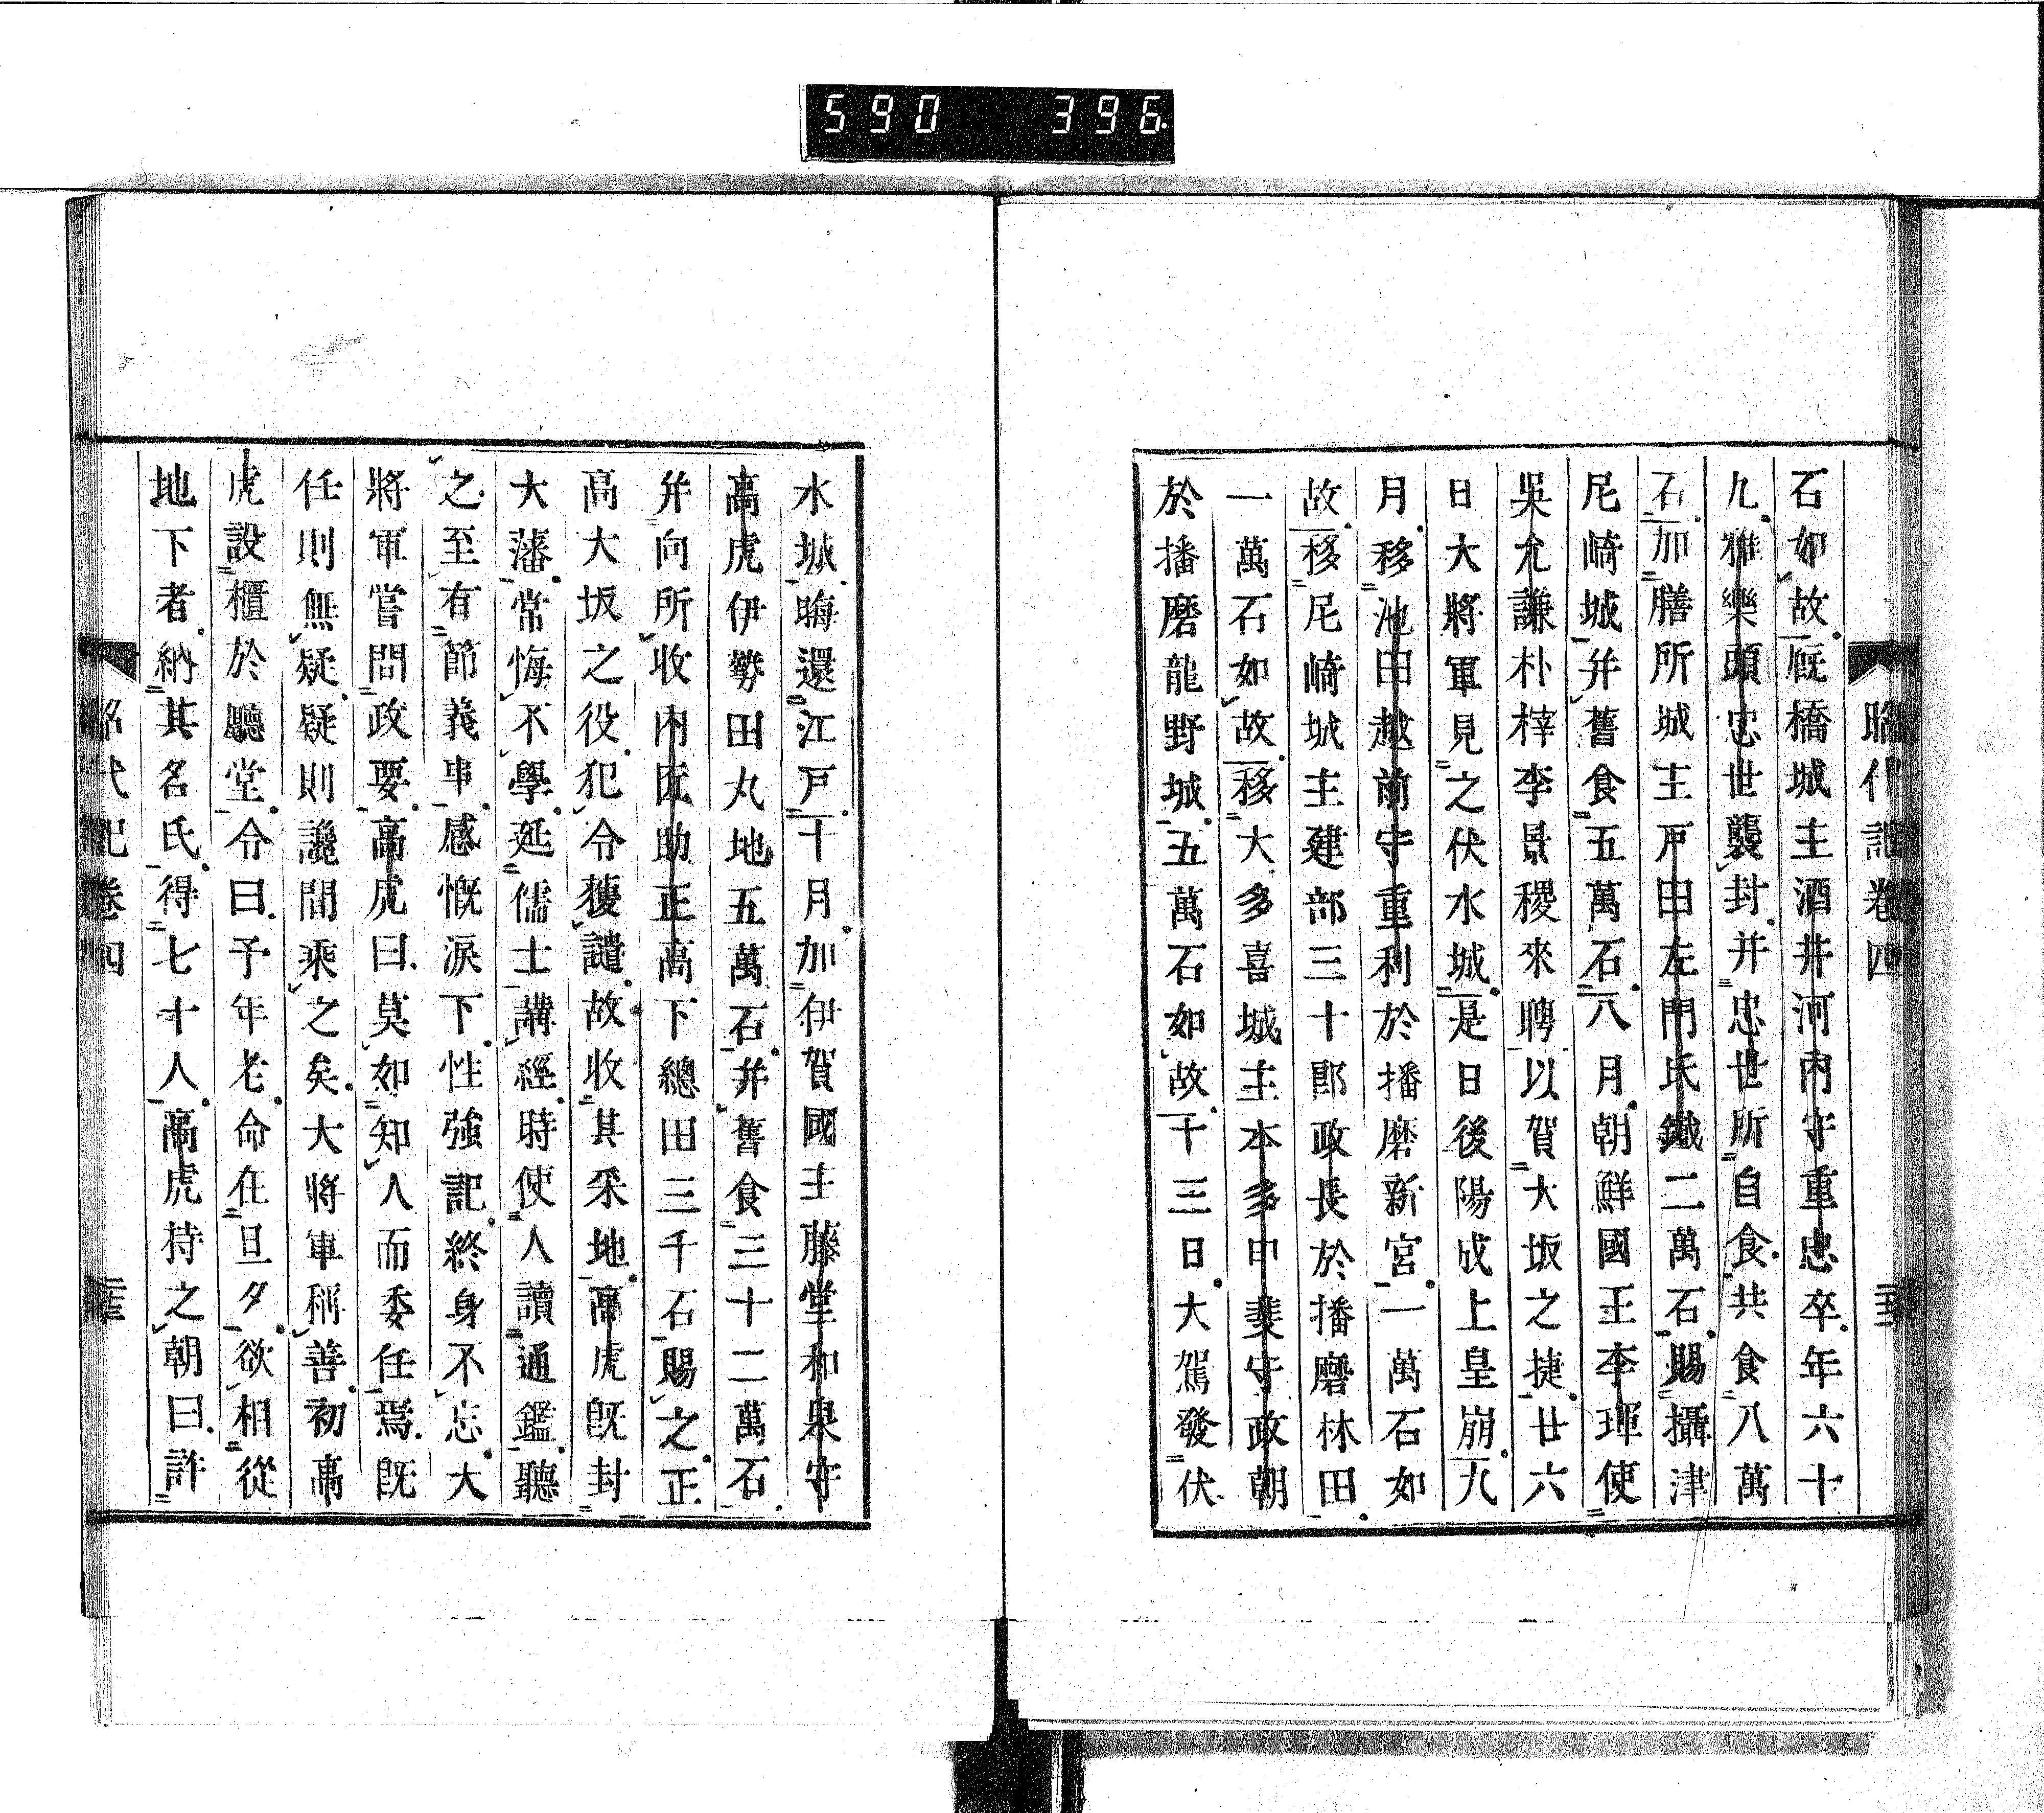 590 396
昭代記卷四
石如故厩橋城主酒井河內守重忠卒年六十
九雅樂頭忠世襲封并忠世所自食共食八萬
石加膳所城主戸田左門氏鐵二萬石賜攝津
尼崎城并舊食五萬石八月朝鮮國王李琿使
吳允謙朴梓李景稷來聘以賀大坂之捷廿六
日大將軍見之伏水城是日後陽成上皇崩九
月移池田越前守重利於播磨新宮一萬石如
故移尼崎城主建部三十郎政長於播磨林田
一萬石如故移大多喜城主本多甲斐守政朝
於播磨龍野城五萬石如故十三日大駕發伏
水城晦還江戸十月加伊賀國主藤堂和泉守
高虎伊勢田丸地五萬石并舊食三十二萬石
并向所收內匠助正高下總田三千石賜之正
高大坂之役犯令獲譴故收其采地高虎既封
大藩常悔不學延儒士講經時使人讀通鑑聽
之至有節義事感慨淚下性強記終身不忘大
將軍嘗問政要高虎曰莫如知人而委任焉既
任則無疑疑則讒間乘之矣大將軍稱善初高
虎設櫃於聽堂令曰予年老命在旦夕欲相從
地下者納其名氏得七十人高虎持之朝曰許
昭代記卷四